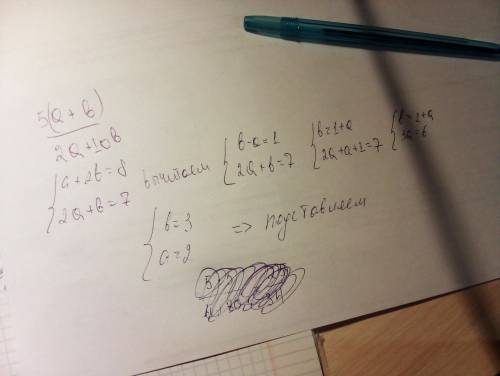 5(a + b)
2a + 10b
{ a + 2b = 8
2a + b = 7
вычитаем
{ b - a = 1
2a + b = 7
{ b = 1 + a
2a + a + 1 = 7
{ b = 1 + a
3a = 6
{ b = 3
a = 2
=> подставляем